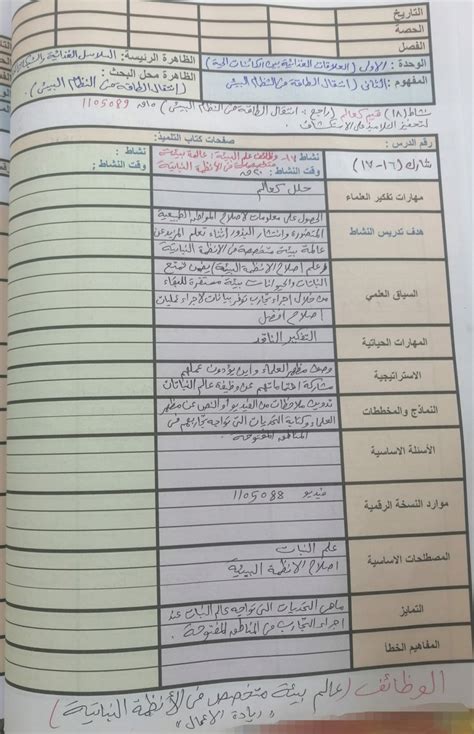 التاريخ
الحصة
الفصل
الوحدة : الأول (العلاقات الغذائية بين الكائنات الحية) الظاهرة الرئيسة: السلاسل الغذائية والشبكات
المفهوم: الثاني (انتقال الطاقة في النظام البيئي) الظاهرة محل البحث : (انتقال الطاقة في النظام البيئي).
نشاط (١٨) قيم كعالم (راجع : انتقال الطاقة في النظام البيئي) 1105089
لتحفيز التلاميذ على الاستكشاف
رقم الدرس : صفحات كتاب التلميذ:
شارك (١٦-١٧) نشاط ١٧- وظائف علم البيئة: عالمة بيئة متخصصة في الأنظمة النباتية نشاط :
وقت النشاط : ٢٠ ق وقت النشاط :
مهارات تفكير العلماء حلل كعالم
هدف تدريس النشاط الحصول على معلومات لإصلاح المواطن الطبيعية
المتضررة وانتشار البذور أثناء تعلم المزيد عن
عالمة بيئة متخصصة في الأنظمة النباتية
السياق العلمي فرعلم إصلاح الأنظمة البيئة) يضمن تمتع
النباتات والحيوانات ببيئة مستقرة للبقاء
من خلال إجراء تجارب توفر بيانات لإجراء عمليات
إصلاح أفضل
المهارات الحياتية التفكير الناقد
الاستراتيجية وصف مظهر العلماء وأين يؤدون عملهم
مشاركة اهتماماتهم عن وظيفة عالم النباتات
النماذج والمخططات تدوين ملاحظات من الفيديو أو النص عن مظهر
العلماء وكتابة التحديات التي تواجه تجاربهم في
المناطق المفتوحة.
الأسئلة الاساسية
موارد النسخة الرقمية فيديو 1105088
المصطلحات الاساسية علم النبات
إصلاح الأنظمة البيئية
التمايز ماهي التحديات التي تواجه عالم النبات عند
إجراء التجارب في المناطق المفتوحة.
المفاهيم الخطأ
الوظائف (عالم بيئة متخصص في الأنظمة النباتية)
"ريادة الأعمال"